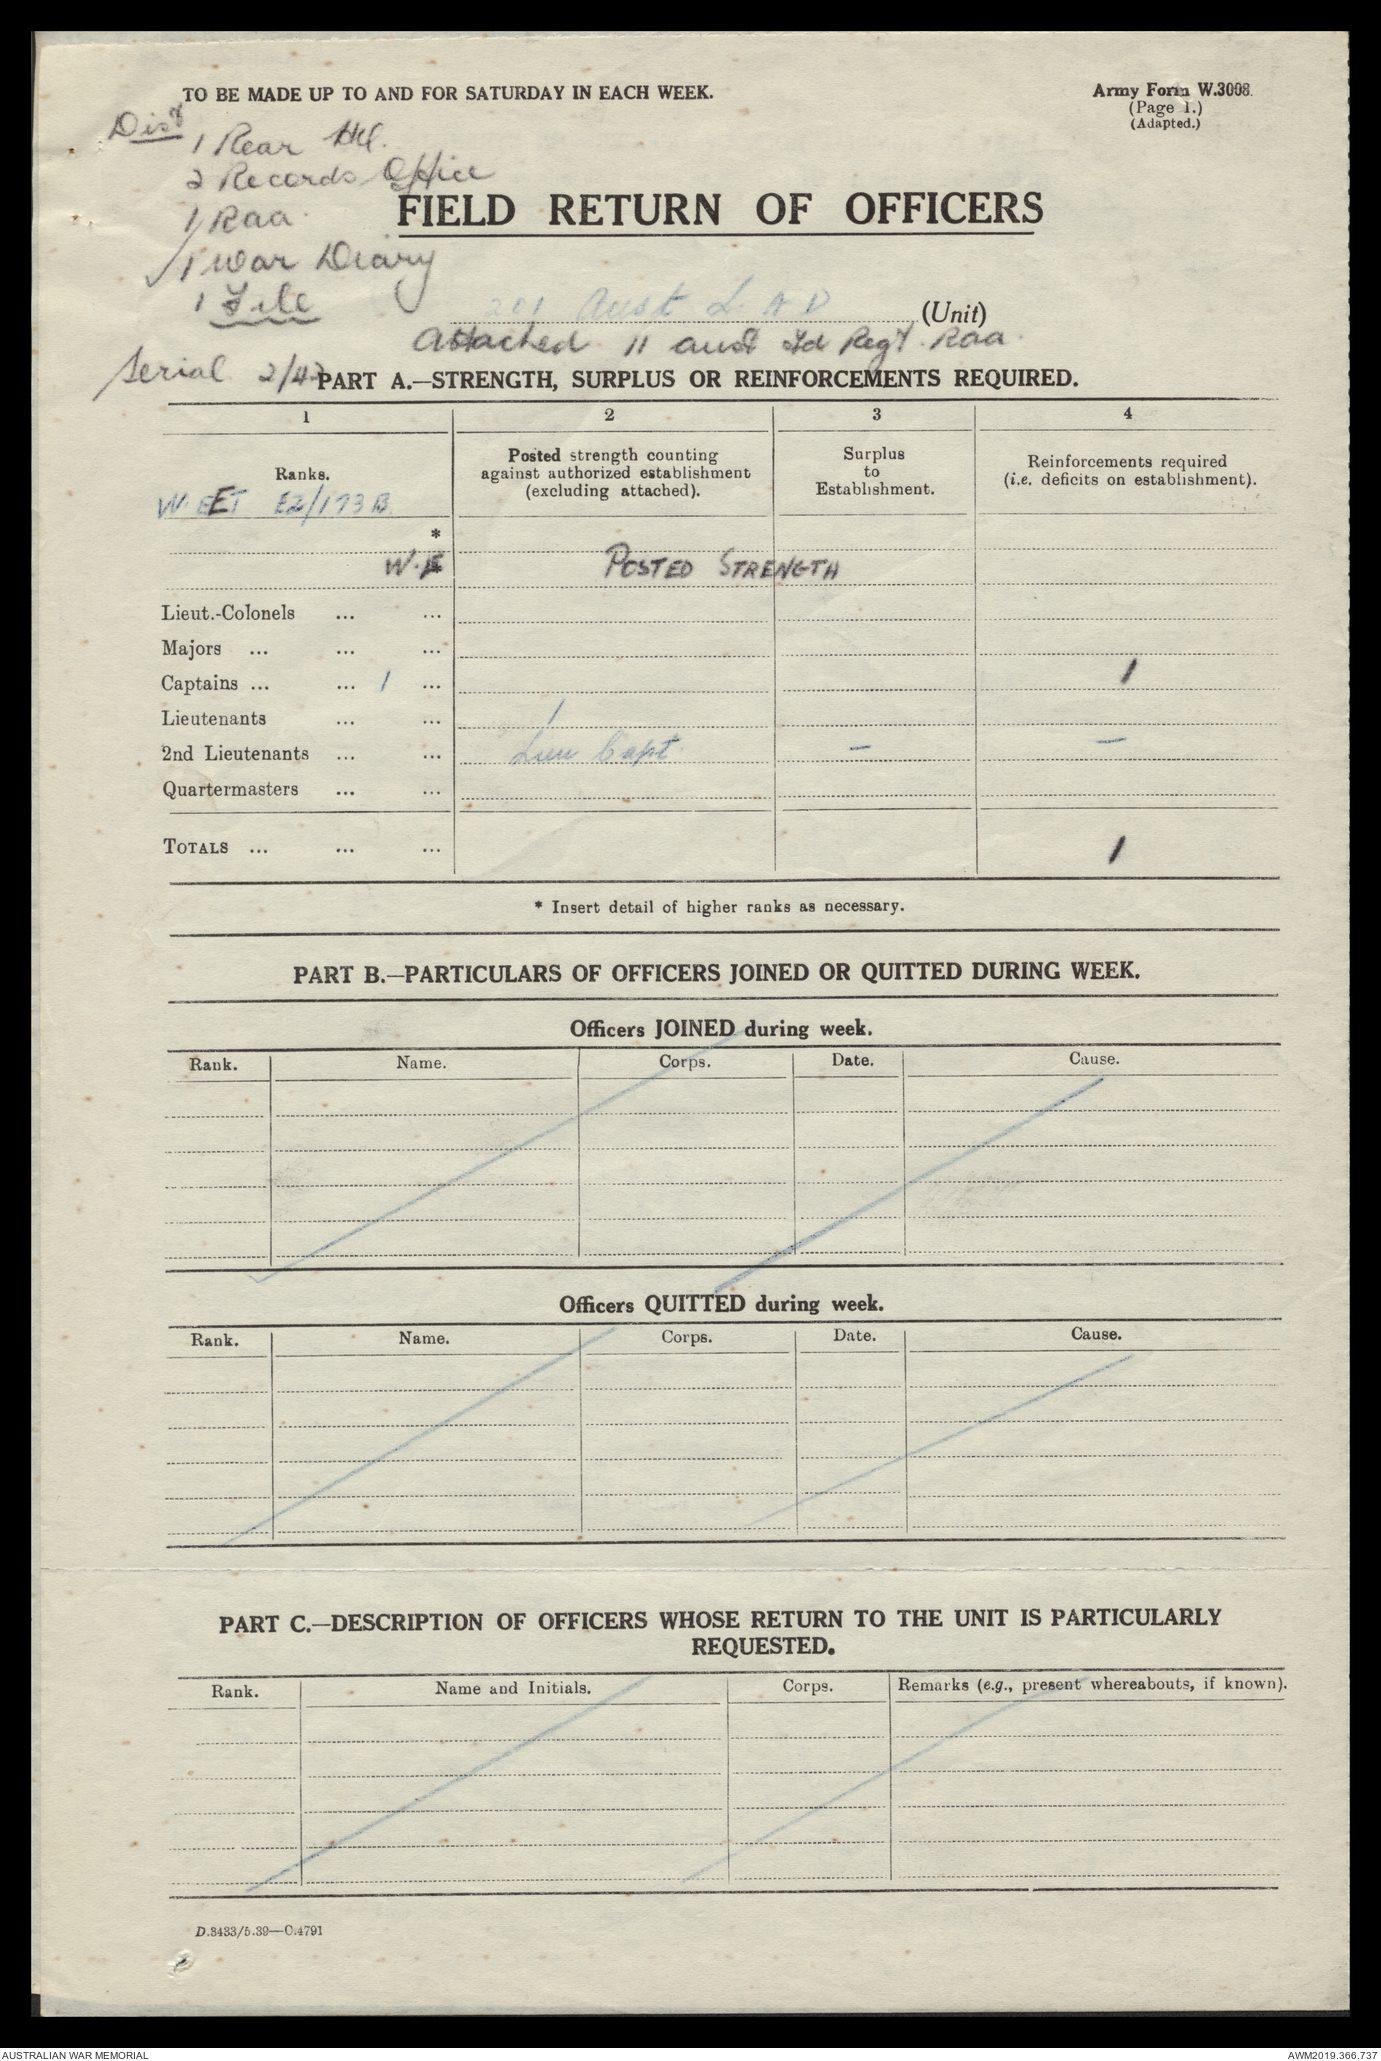 TO BE MADE UP TO AND FOR SATURDAY IN EACH WEEK.
Army Form W.3008.
(Page 1.)
(Adapted.)
Dist
1 Rear
2 Records Office
1 Raa
1 War Diary
1 File
FIELD RETURN OF OFFICERS
201 Aust L A D (Unit)
Attached 11 aust Fd Regt. Raa.
Serial 2/42
PART A.—STRENGTH, SURPLUS OR REINFORCEMENTS REQUIRED.
1 2 3 4
Ranks.
Posted strength counting
against authorized establishment
(excluding attached).
Surplus
to
Establishment.
Reinforcements required
(i.e. deficits on establishment).
W. EET E2/173 B
*
W.E POSTED STRENGTH
Lieut.-Colonels ... ...
Majors ... ... ...
Captains ... ... 1 ... 1
Lieutenants ... ... 1
2nd Lieutenants ... ... Lieu Capt — —
Quartermasters ... ...
TOTALS ... ... ... 1
* Insert detail of higher ranks as necessary.
PART B.—PARTICULARS OF OFFICERS JOINED OR QUITTED DURING WEEK.
Officers JOINED during week.
Rank. Name. Corps. Date. Cause.
Officers QUITTED during week.
Rank. Name. Corps. Date. Cause.
PART C.—DESCRIPTION OF OFFICERS WHOSE RETURN TO THE UNIT IS PARTICULARLY
REQUESTED.
Rank. Name and Initials. Corps. Remarks (e.g., present whereabouts, if known).
D.3433/5.39—C.4791
AUSTRALIAN WAR MEMORIAL
AWM2019.366.737